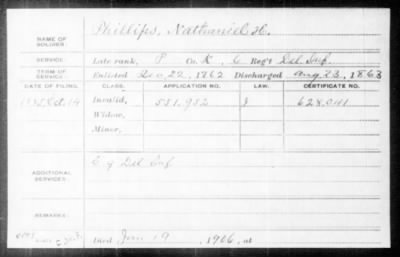 NAME OF SOLDIER: Phillips, Nathaniel H.
SERVICE: Late rank, P Co. K, 6 Reg't Del. Inf.
TERM OF SERVICE: Enlisted Dec. 22, 1862 Discharged Aug. 23, 1863
DATE OF FILING. CLASS. APPLICATION NO. LAW. CERTIFICATE NO.
Oct. 14 Invalid, 551.952 J 628.041
Widow,
Minor,
ADDITIONAL SERVICES: Del Inf
REMARKS:
Died Jan 19, 1906, at